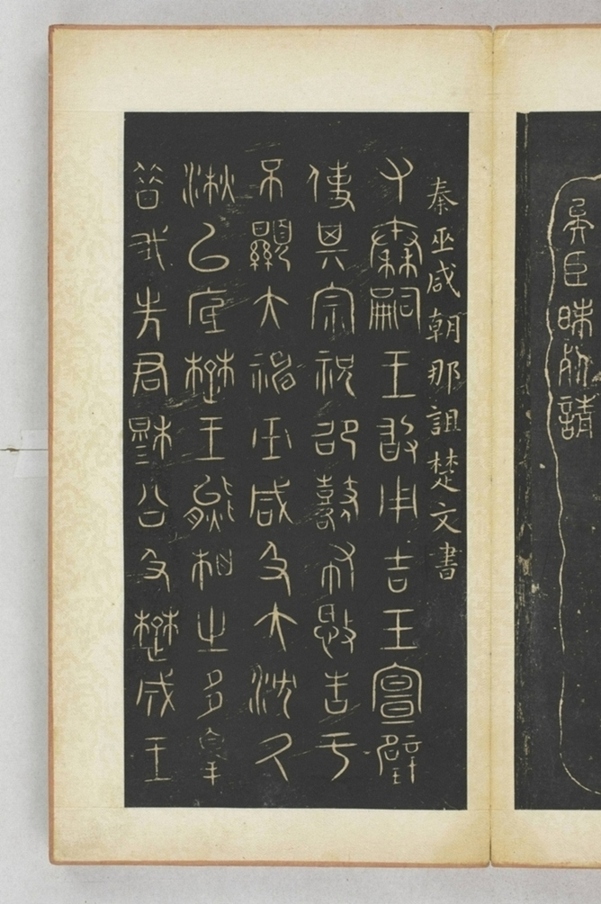 矣臣昧死請
秦巫咸朝那詛楚文書
又秦嗣王敢用吉玉宣璧
使其宗祝邵鼛布憨告于
不顯大神巫咸及大沈久
湫以底楚王熊相之多辠
昔我先君穆公及楚成王